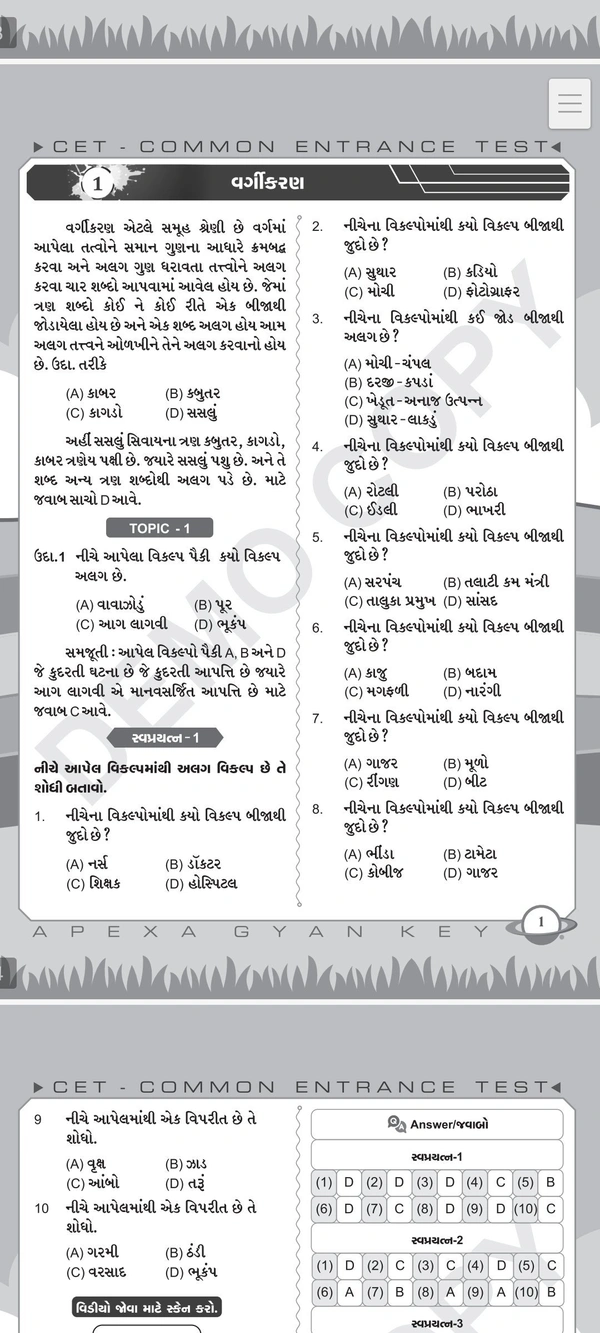 ▶CET - COMMON ENTRANCE TEST◀
1 વર્ગીકરણ
વર્ગીકરણ એટલે સમૂહ શ્રેણી છે વર્ગમાં
આપેલા તત્વોને સમાન ગુણના આધારે ક્રમબદ્ધ
કરવા અને અલગ ગુણ ધરાવતા તત્ત્વોને અલગ
કરવા ચાર શબ્દો આપવામાં આવેલ હોય છે. જેમાં
ત્રણ શબ્દો કોઈ ને કોઈ રીતે એક બીજાથી
જોડાયેલા હોય છે અને એક શબ્દ અલગ હોય આમ
અલગ તત્ત્વને ઓળખીને તેને અલગ કરવાનો હોય
છે. ઉદા. તરીકે
(A) કાબર (B) કબુતર
(C) કાગડો (D) સસલું
અહીં સસલું સિવાયના ત્રણ કબુતર, કાગડો,
કાબર ત્રણેય પક્ષી છે. જયારે સસલું પશુ છે. અને તે
શબ્દ અન્ય ત્રણ શબ્દોથી અલગ પડે છે. માટે
જવાબ સાચો D આવે.
TOPIC - 1
ઉદા.1 નીચે આપેલા વિકલ્પ પૈકી કયો વિકલ્પ
અલગ છે.
(A) વાવાઝોડું (B) પૂર
(C) આગ લાગવી (D) ભૂકંપ
સમજૂતી : આપેલ વિકલ્પો પૈકી A, B અને D
જે કુદરતી ઘટના છે જે કુદરતી આપત્તિ છે જયારે
આગ લાગવી એ માનવસર્જિત આપત્તિ છે માટે
જવાબ C આવે.
સ્વપ્રયત્ન - 1
નીચે આપેલ વિકલ્પમાંથી અલગ વિકલ્પ છે તે
શોધી બતાવો.
1. નીચેના વિકલ્પોમાંથી કયો વિકલ્પ બીજાથી
જુદો છે ?
(A) નર્સ (B) ડૉકટર
(C) શિક્ષક (D) હોસ્પિટલ
2. નીચેના વિકલ્પોમાંથી કયો વિકલ્પ બીજાથી
જુદો છે ?
(A) સુથાર (B) કડિયો
(C) મોચી (D) ફોટોગ્રાફર
3. નીચેના વિકલ્પોમાંથી કઈ જોડ બીજાથી
અલગ છે ?
(A) મોચી - ચંપલ
(B) દરજી - કપડાં
(C) ખેડૂત - અનાજ ઉત્પન્ન
(D) સુથાર - લાકડું
4. નીચેના વિકલ્પોમાંથી કયો વિકલ્પ બીજાથી
જુદો છે ?
(A) રોટલી (B) પરોઠા
(C) ઈડલી (D) ભાખરી
5. નીચેના વિકલ્પોમાંથી કયો વિકલ્પ બીજાથી
જુદો છે ?
(A) સરપંચ (B) તલાટી કમ મંત્રી
(C) તાલુકા પ્રમુખ (D) સાંસદ
6. નીચેના વિકલ્પોમાંથી કયો વિકલ્પ બીજાથી
જુદો છે ?
(A) કાજુ (B) બદામ
(C) મગફળી (D) નારંગી
7. નીચેના વિકલ્પોમાંથી કયો વિકલ્પ બીજાથી
જુદો છે ?
(A) ગાજર (B) મૂળો
(C) રીંગણ (D) બીટ
8. નીચેના વિકલ્પોમાંથી કયો વિકલ્પ બીજાથી
જુદો છે ?
(A) ભીંડા (B) ટામેટા
(C) કોબીજ (D) ગાજર
DEMO COPY
APEXA GYAN KEY 1
▶CET - COMMON ENTRANCE TEST◀
9 નીચે આપેલમાંથી એક વિપરીત છે તે
શોધો.
(A) વૃક્ષ (B) ઝાડ
(C) આંબો (D) તરૂં
10 નીચે આપેલમાંથી એક વિપરીત છે તે
શોધો.
(A) ગરમી (B) ઠંડી
(C) વરસાદ (D) ભૂકંપ
વિડીયો જોવા માટે સ્કેન કરો.
Answer/જવાબો
સ્વપ્રયત્ન-1
(1) D (2) D (3) D (4) C (5) B
(6) D (7) C (8) D (9) D (10) C
સ્વપ્રયત્ન-2
(1) D (2) C (3) C (4) D (5) C
(6) A (7) B (8) A (9) A (10) B
સ્વપ્રયત્ન-3